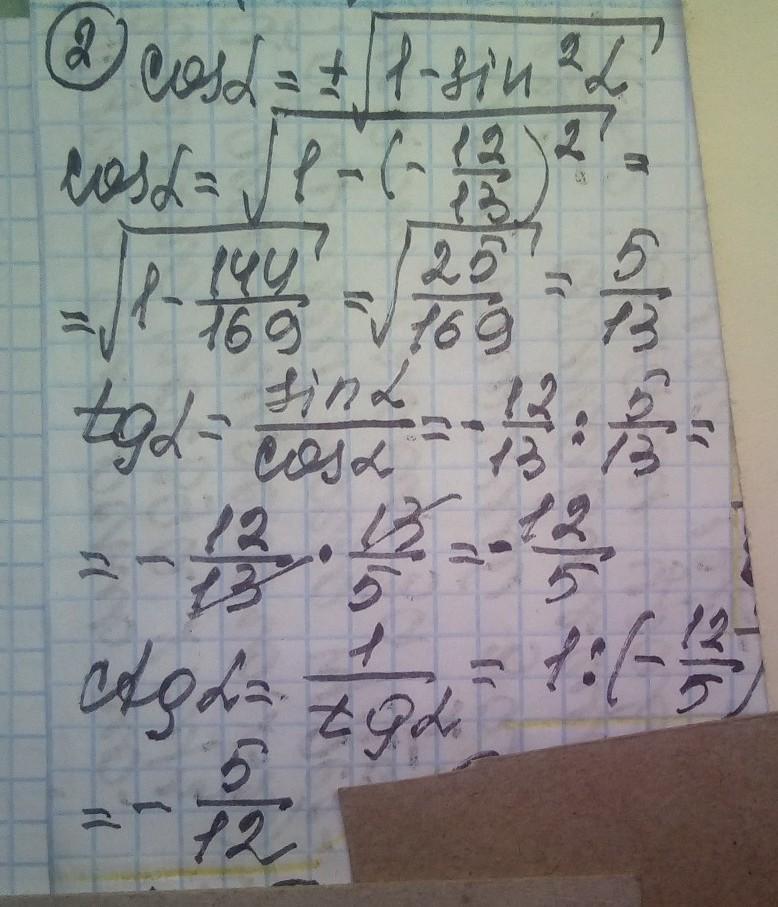 ② cosα = ±√(1 - sin²α)
cosα = √(1 - (- 12/13)²) =
= √(1 - 144/169) = √(25/169) = 5/13
tgα = sinα/cosα = - 12/13 : 5/13 =
= - 12/13 · 13/5 = - 12/5
ctgα = 1/tgα = 1 : (- 12/5)
= - 5/12